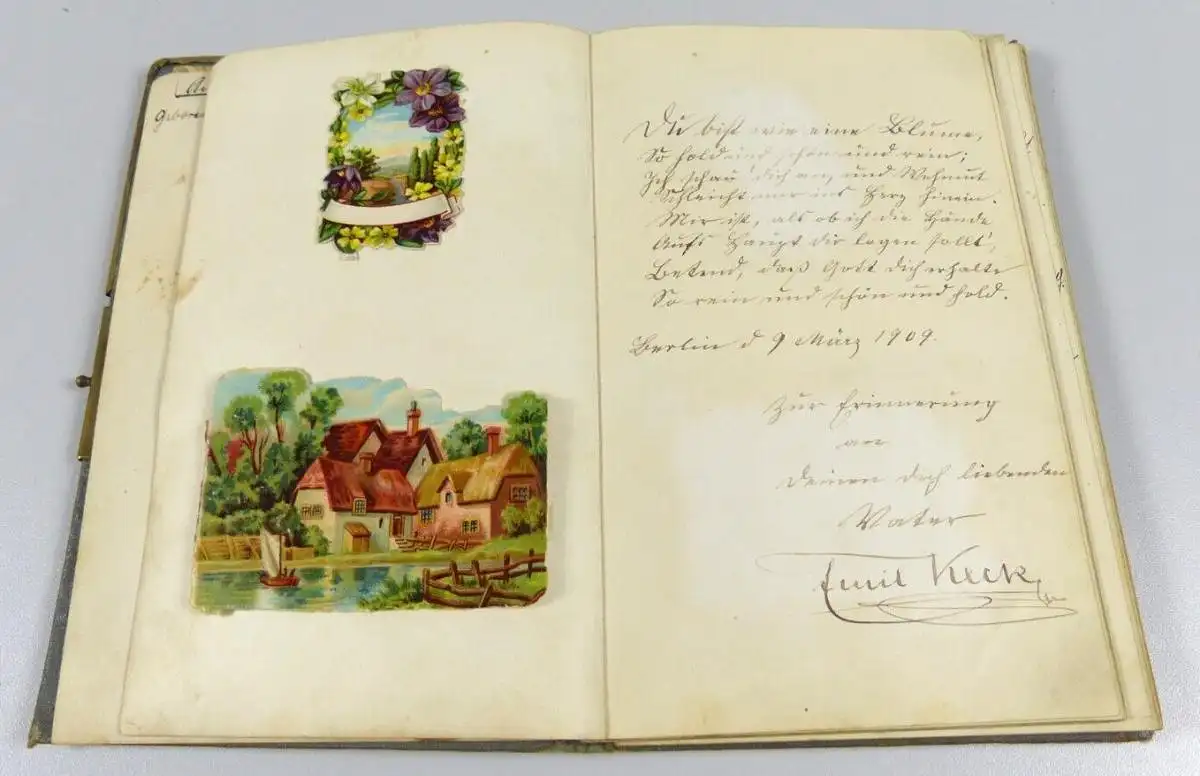 Geboren
Du bist wie eine Blume,
So hold und schön und rein;
Ich schau' dich an, und Wehmut
Schleicht mir ins Herz hinein.
Mir ist, als ob ich die Hände
Aufs Haupt dir legen sollt',
Betend, daß Gott dich erhalte
So rein und schön und hold.
Berlin d 9 März 1909.
Zur Erinnerung
an
Deinen Dich liebenden
Vater
Emil Keck